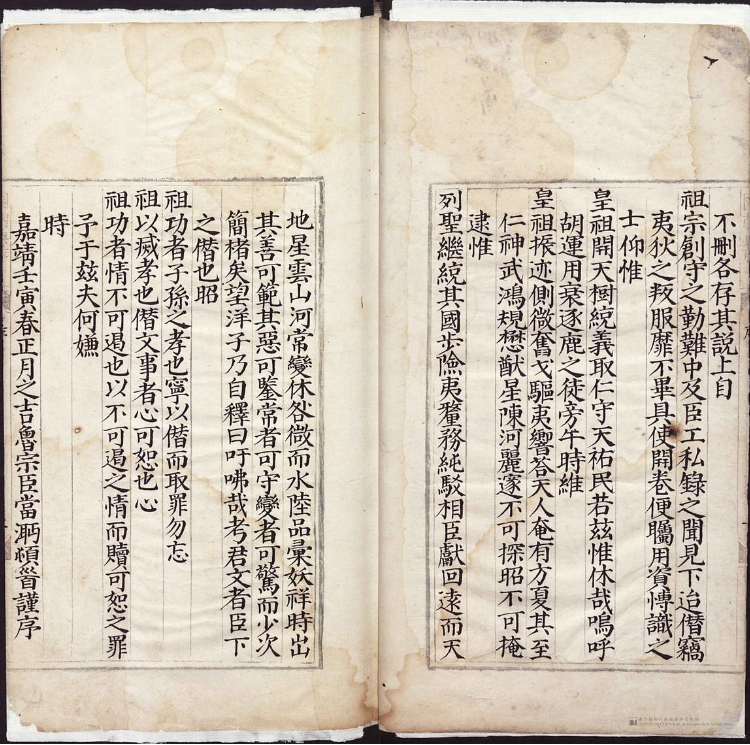 不刪各存其說上自
祖宗創守之勤難中及臣工私錄之聞見下迨僭竊
夷狄之叛服靡不畢具使開卷便矚用資博識之
士仰惟
皇祖開天樹統義取仁守天祐民若茲惟休哉嗚呼
胡運用衰逐鹿之徒旁午時維
皇祖振迹側微奮戈驅夷響答天人奄有方夏其至
仁神武鴻規懋猷星陳河麗邃不可探昭不可掩
逮惟
列聖繼統其國步險夷釐務純駁相臣獻回遠而天
地星雲山河常變休咎微而水陸品彙妖祥時出
其善可範其惡可鑒常者可守變者可驚而少次
簡楮矣望洋子乃自釋曰吁咈哉考君文者臣下
之僭也昭
祖功者子孫之孝也寧以僭而取罪勿忘
祖以臧孝也僭文事者心可恕也心
祖功者情不可遏也以不可遏之情而贖可恕之罪
予于茲夫何嫌
時
嘉靖壬寅春正月之吉魯宗臣當㴐頓首謹序